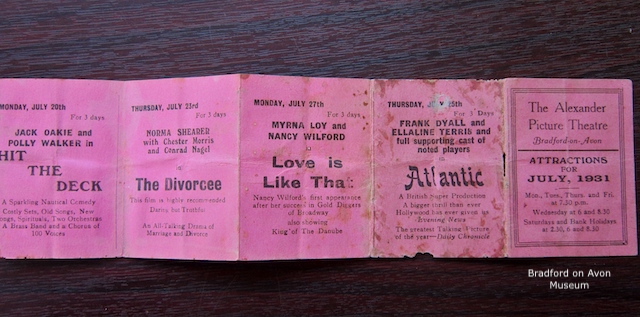 MONDAY, JULY 20th
For 3 days
JACK OAKIE and
POLLY WALKER in
HIT
THE
DECK
A Sparkling Nautical Comedy
Costly Sets, Old Songs, New
Songs, Spirituals, Two Orchestras
A Brass Band and a Chorus of
100 Voices
THURSDAY, JULY 23rd
For 3 days
NORMA SHEARER
with Chester Morris
and Conrad Nagel
in
The Divorcee
This film is highly recommended
Daring but Truthful
An All-Talking Drama of
Marriage and Divorce
MONDAY, JULY 27th
For 3 days
MYRNA LOY and
NANCY WILFORD
in
Love is
Like That
Nancy Wilford's first appearance
after her success in Gold Diggers
of Broadway
also showing
King of the Danube
THURSDAY, 25th
For 3 Days
FRANK DYALL and
ELLALINE TERRIS and
full supporting cast of
noted players
in
Atlantic
A British Super Production
A bigger thrill than ever
Hollywood has ever given us
Evening News
The greatest Talking Picture
of the year—Daily Chronicle
The Alexander
Picture Theatre
Bradford-on-Avon
ATTRACTIONS
FOR
JULY, 1931
Mon., Tues., Thurs. and Fri.
at 7.30 p.m.
Wednesday at 6 and 8.30
Saturdays and Bank Holidays
at 2.30, 6 and 8.30
Bradford on Avon
Museum